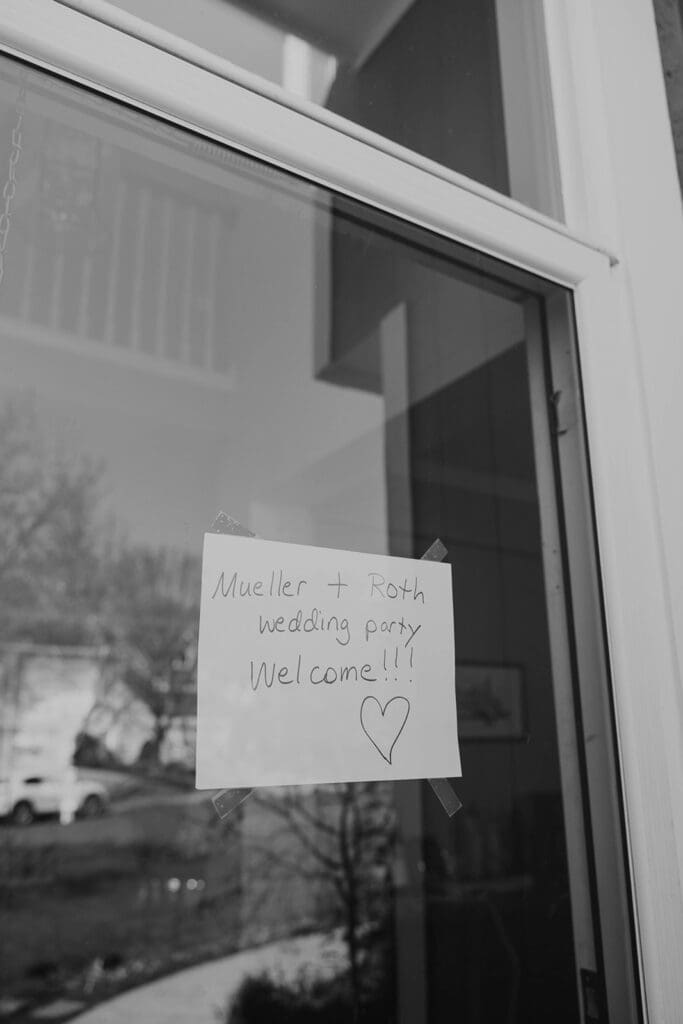 Mueller + Roth
wedding party
Welcome!!!